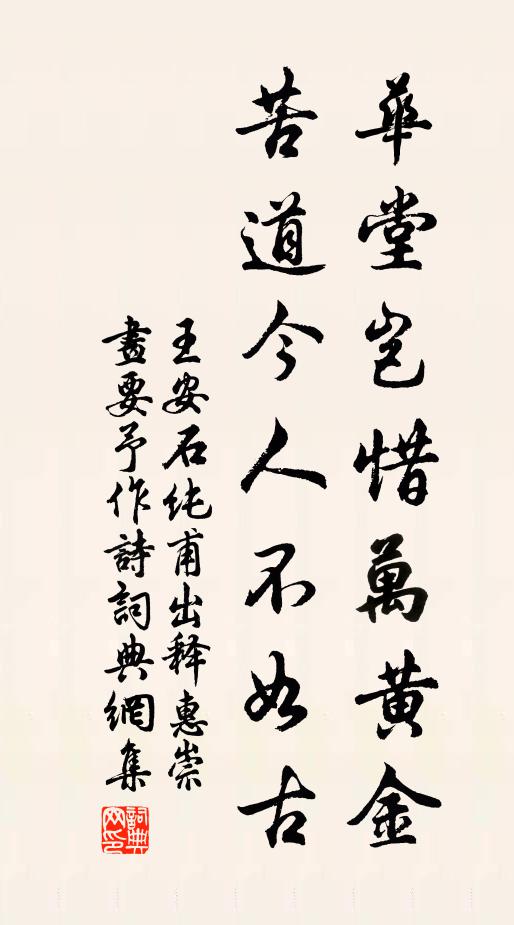 華堂豈惜萬黃金
苦道今人不如古
王安石純甫出释惠崇
畫要予作詩詞典網集
詞典網印